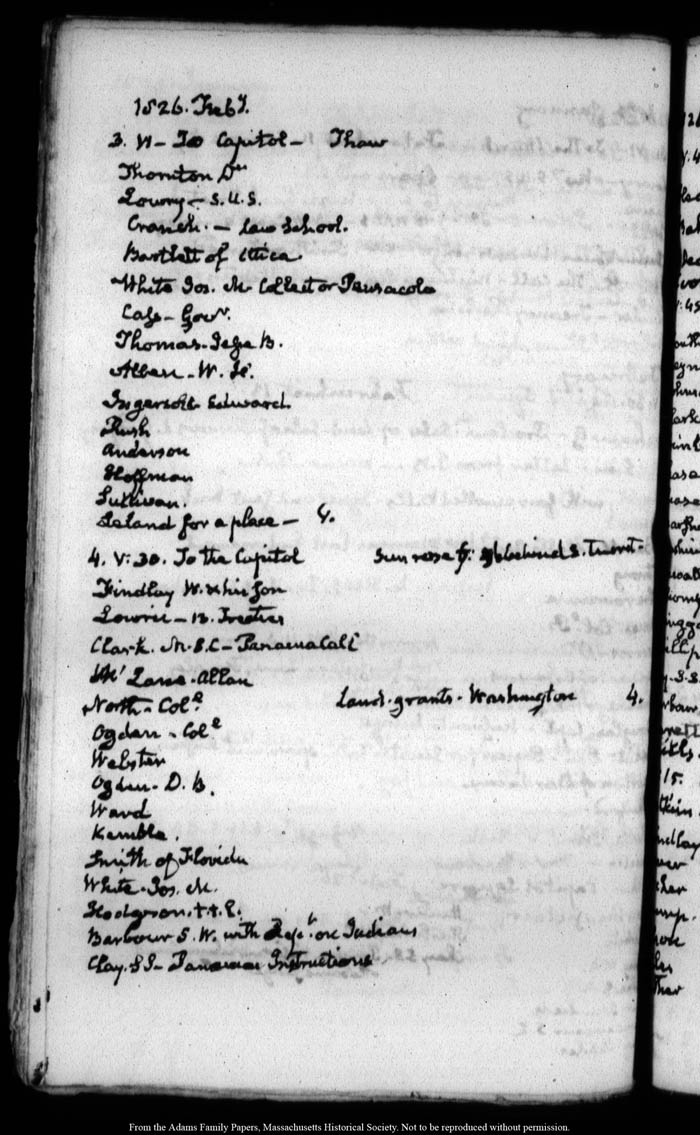 1826. Feby.
3. VI - To Capitol - Thaw
Thornton Dr.
Lowry - S.U.S.
Cranch. - Law School.
Bartlett of Utica
White Jos. M. Collector Pensacola
Cass - Govr.
Thomas - Jesse B.
Allan - W.
Ingersoll Edward
Rush
Anderson
Hoffman
Sullivan.
Leland for a place - 4.
4. V: 30. To the Capitol Sun rose 7: behind S.
Findlay W. & his son
Lowrie - 13. Treaties
Clark. M.B.C - Panama Call
Mc Lane - Allan
North - Cole Land-grants - Washington 4.
Ogden - Cole
Webster
Ogden - D. B.
Ward
Kemble.
Smith of Florida
White - Jos. M.
Hodgson
Barbour S.W. with Rept. on Indians
Clay. S.S - Panama Instructions
From the Adams Family Papers, Massachusetts Historical Society. Not to be reproduced without permission.